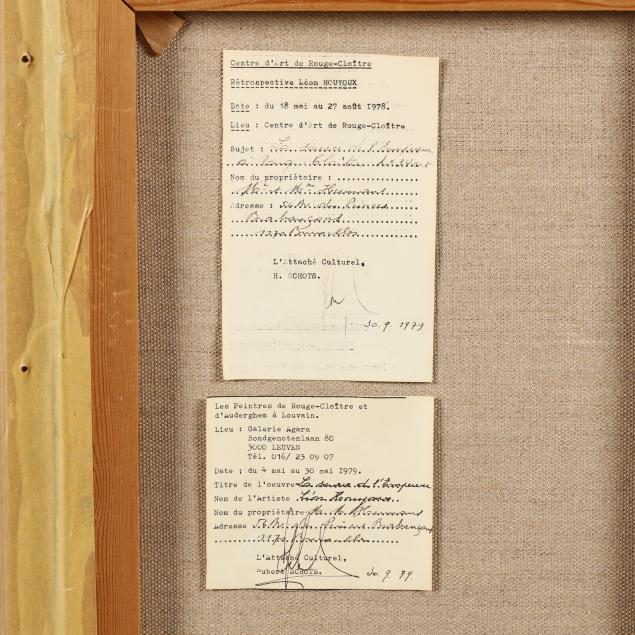 Centre d'Art de Rouge-Cloître
Rétrospective Léon HOUYOUX
Date : du 18 mai au 27 août 1978.
Lieu : Centre d'Art de Rouge-Cloître
Sujet : La source de l'Empereur
à Rouge-Cloître
Nom du propriétaire :
Mr et Mme
Adresse : 56 Av. des Princes
Brabançons
1170 Bruxelles
L'Attaché Culturel,
H. SCHOTS.
30.9.1979
Les Peintres de Rouge-Cloître et
d'Auderghem à Louvain.
Lieu : Galerie Agara
Bondgenotenlaan 80
3000 LEUVEN
Tél. 016/ 23 09 07
Date : du 4 mai au 30 mai 1979.
Titre de l'oeuvre La source de l'Empereur
Nom de l'Artiste Léon Houyoux
Nom du propriétaire
Adresse 56 Av. des Princes Brabançons
1170 Bruxelles
L'Attaché Culturel,
Hubert SCHOTS.
30.9.79.